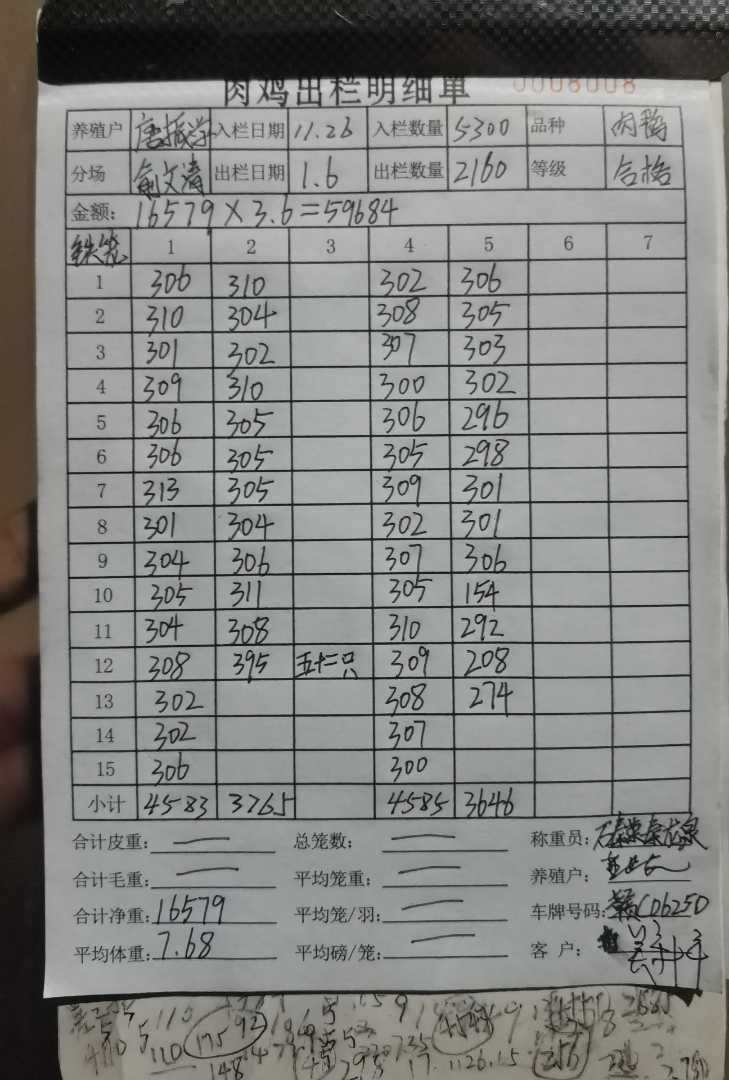 肉鸡出栏明细单 0008008
养殖户 唐振学 入栏日期 11.26 入栏数量 5300 品种 肉鸭
分场 俞文涛 出栏日期 1.6 出栏数量 2160 等级 合格
金额: 16579×3.6=59684
铁笼 1 2 3 4 5 6 7
1 306 310 302 306
2 310 304 308 305
3 301 302 307 303
4 309 310 300 302
5 306 305 306 296
6 306 305 305 298
7 313 305 309 301
8 301 304 302 301
9 304 306 307 306
10 305 311 305 154
11 304 308 310 292
12 308 395 五十二只 309 208
13 302 308 274
14 302 307
15 306 300
小计 4583 3765 4585 3646
合计皮重: 总笼数: 称重员:
合计毛重: 平均笼重: 养殖户:
合计净重: 16579 平均笼/羽: 车牌号码: 赣C06250
平均体重: 7.68 平均磅/笼: 客 户: